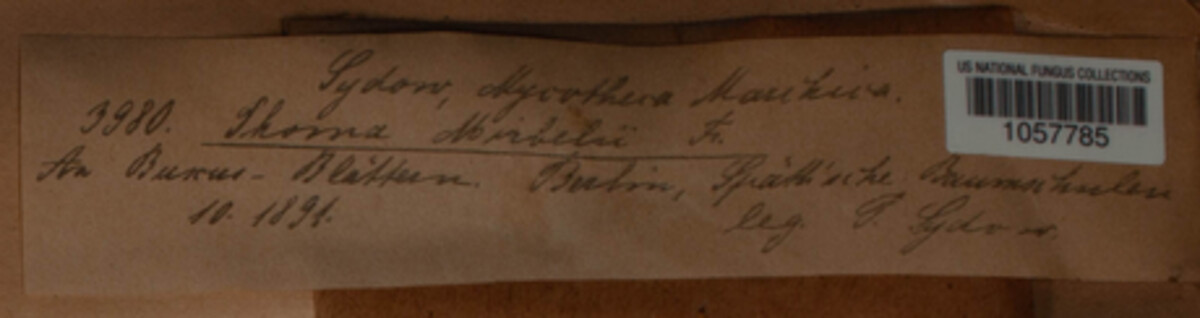 Sydow, Mycotheca Marchica.
3980. Phoma Mirbelii Fr.
An Buxus-Blättern. Berlin, Späth'sche Baumschulen
10. 1891. leg. P. Sydow.
US NATIONAL FUNGUS COLLECTIONS
1057785